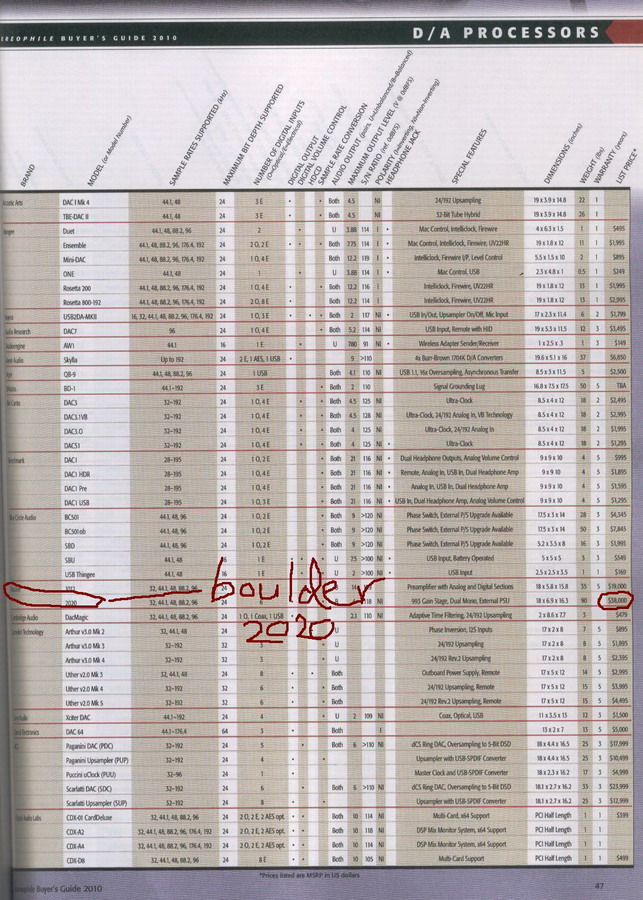 STEREOPHILE BUYER'S GUIDE 2010
D/A PROCESSORS
BRAND
MODEL (or Model Number)
SAMPLE RATES SUPPORTED (kHz)
MAXIMUM BIT DEPTH SUPPORTED
NUMBER OF DIGITAL INPUTS
(O=Optical/E=Electrical)
DIGITAL OUTPUT
DIGITAL VOLUME CONTROL
HDCD
SAMPLE RATE CONVERSION
AUDIO OUTPUT (pairs, U=Unbalanced/B=Balanced)
MAXIMUM OUTPUT LEVEL (V @ 0dBFS)
S/N RATIO (ref. 0dBFS)
POLARITY (I=Inverting, NI=Non-Inverting)
HEADPHONE JACK
SPECIAL FEATURES
DIMENSIONS (inches)
WEIGHT (lbs)
WARRANTY (years)
LIST PRICE*
Acoustic Arts DAC I Mk 4 44.1, 48 24 3 E • Both 4.5 NI 24/192 Upsampling 19 x 3.9 x 14.8 22 1
TBE-DAC II 44.1, 48 24 3 E • Both 4.5 NI 32-Bit Tube Hybrid 19 x 3.9 x 14.8 26 1
Duet 44.1, 48, 88.2, 96 24 2 • U 3.88 114 I • Mac Control, Intelliclock, Firewire 4 x 6.3 x 1.5 1 1 $495
Ensemble 44.1, 48, 88.2, 96, 176.4, 192 24 2 O, 2 E • • Both 7.75 114 I • Mac Control, Intelliclock, Firewire, UV22HR 19 x 1.8 x 12 11 1 $1,995
Mini-DAC 44.1, 48, 88.2, 96, 176.4, 192 24 1 O, 4 E Both 12.2 119 I • Intelliclock, Firewire I/P, Level Control 5.5 x 1.5 x 10 2 1 $895
ONE 44.1, 48 24 1 • U 3.88 114 I • Mac Control, USB 2.3 x 4.8 x 1 0.5 1 $249
Rosetta 200 44.1, 48, 88.2, 96, 176.4, 192 24 1 O, 4 E • • Both 12.2 116 I Intelliclock, Firewire, UV22HR 19 x 1.8 x 12 13 1 $1,995
Rosetta 800-192 44.1, 48, 88.2, 96, 176.4, 192 24 2 O, 8 E • • Both 12.2 114 I Intelliclock, Firewire, UV22HR 19 x 1.8 x 12 13 1 $2,995
USB2DA-MKII 16, 32, 44.1, 48, 88.2, 96, 176.4, 192 24 1 O, 3 E • • • Both 2 117 NI • USB In/Out, Upsampler On/Off, Mic Input 17 x 2.3 x 11.4 6 2 $1,799
Audio Research DAC7 96 24 1 O, 4 E Both 5.2 114 NI USB Input, Remote with HID 19 x 5.3 x 11.5 12 3 $3,495
Audioengine AW1 44.1 16 1 E • U 780 91 NI • Wireless Adapter Sender/Receiver 1 x 2.5 x .3 1 3 $149
Skylla Up to 192 24 2 E, 1 AES, 1 USB • 9 >110 4x Burr-Brown 1704K D/A Converters 19.6 x 5.1 x 16 37 $6,850
QB-9 44.1, 48, 88.2, 96 24 1 USB Both 4.1 110 NI USB 1.1, 16x Oversampling, Asynchronous Transfer 8.5 x 3 x 11.5 5 $2,500
BD-1 44.1–192 24 3 E • Both 2 110 Signal Grounding Lug 16.8 x 7.5 x 17.5 50 5 TBA
DAC3 32–192 24 1 O, 4 E • • Both 4.5 125 NI Ultra-Clock 8.5 x 4 x 12 18 2 $2,495
DAC3.1VB 32–192 24 1 O, 4 E • • Both 4.5 128 NI Ultra-Clock, 24/192 Analog In, VB Technology 8.5 x 4 x 12 18 2 $2,995
DAC3.O 32–192 24 1 O, 4 E • • Both 4 125 NI Ultra-Clock, 24/192 Analog In 8.5 x 4 x 12 18 2 $1,295
DAC51 32–192 24 1 O, 4 E • • Both 4 125 NI • Ultra-Clock 8.5 x 4 x 12 18 2 $1,295
Benchmark DAC1 28–195 24 1 O, 2 E • Both 21 116 NI • Dual Headphone Outputs, Analog Volume Control 9 x 9 x 10 4 5 $995
DAC1 HDR 28–195 24 1 O, 4 E • Both 21 116 NI • Remote, Analog In, USB In, Dual Headphone Amp 9 x 9 10 4 5 $1,895
DAC1 Pre 28–195 24 1 O, 4 E • Both 21 116 NI • Analog In, USB In, Dual Headphone Amp 9 x 9 x 10 4 5 $1,595
DAC1 USB 28–195 24 1 O, 3 E • Both 21 116 NI • USB In, Dual Headphone Amp, Analog Volume Control 9 x 9 x 10 4 5 $1,295
Black Circle Audio BC501 44.1, 48, 96 24 1 O, 2 E • Both 9 >120 NI Phase Switch, External P/S Upgrade Available 17.5 x 3 x 14 28 3 $4,345
BC501ob 44.1, 48, 96 24 1 O, 2 E • Both 9 >120 NI Phase Switch, External P/S Upgrade Available 17.5 x 3 x 14 50 3 $7,845
SBD 44.1, 48, 96 24 1 O, 2 E • Both 9 >120 NI Phase Switch, External P/S Upgrade Available 5.2 x 3.5 x 8 16 3 $1,995
SBU 44.1, 48 16 1 E • U 2.5 >100 NI • USB Input, Battery Operated 5 x 5 x 3 3 3 $549
USB Thingee 44.1, 48 16 1 E • U 2 >100 NI • USB Input 2.5 x 2.5 x 3.5 1 1 $169
1012 32, 44.1, 48, 88.2, 96 24 14 NI Preamplifier with Analog and Digital Sections 18 x 5.8 x 15.8 35 5 $19,000
boulder
2020 32, 44.1, 48, 88.2, 96 24 6 118 NI 993 Gain Stage, Dual Mono, External PSU 18 x 6.9 x 16.3 90 $38,000
2020
Cambridge Audio DacMagic 32, 44.1, 48, 88.2, 96 24 1 O, 1 Coax, 1 USB Both 2.1 110 NI Adaptive Time Filtering, 24/192 Upsampling 2 x 8.6 x 7.7 3 $479
Arthur v3.0 Mk 2 32, 44.1, 48 24 U Phase Inversion, 125 Inputs 17 x 2 x 8 7 5 $895
Arthur v3.0 Mk 3 32–192 32 3 U 24/192 Upsampling 17 x 2 x 8 8 5 $1,895
Arthur v3.0 Mk 4 32–192 32 3 • U 24/192 Rev.2 Upsampling 17 x 2 x 8 8 5 $2,395
Uther v2.0 Mk 3 32, 44.1, 48 24 8 • • Both Outboard Power Supply, Remote 17 x 5 x 12 14 5 $2,995
Uther v2.0 Mk 4 32–192 32 6 • Both 24/192 Upsampling, Remote 17 x 5 x 12 15 5 $3,995
Uther v2.0 Mk 5 32–192 32 6 • Both 24/192 Rev.2 Upsampling, Remote 17 x 5 x 12 15 5 $4,495
Xciter DAC 44.1–192 24 4 • U 2 109 NI Coax, Optical, USB 11 x 3.5 x 13 12 3 $1,500
DAC 64 44.1–176.4 64 3 Both I 13 x 2 x 7 15 5 $5,000
Paganini DAC (PDC) 32–192 24 5 • Both 6 >110 NI dCS Ring DAC, Oversampling to 5-Bit DSD 18 x 4.4 x 16.5 25 3 $17,999
Paganini Upsampler (PUP) 32–192 24 4 • • Upsampler with USB-SPDIF Converter 18 x 4.4 x 16.5 25 3 $10,499
Puccini uClock (PUU) 32–96 24 1 • Master Clock and USB-SPDIF Converter 18 x 2.3 x 16.2 17 3 $4,999
Scarlatti DAC (SDC) 32–192 24 6 • Both 6 >110 NI dCS Ring DAC, Oversampling to 5-Bit DSD 18.1 x 2.7 x 16.2 33 3 $23,999
Scarlatti Upsampler (SUP) 32–192 24 8 • • Upsampler with USB-SPDIF Converter 18.1 x 2.7 x 16.2 25 3 $12,999
Digital Audio Labs CDX-01 CardDeluxe 32, 44.1, 48, 88.2, 96 24 2 O, 2 E, 2 AES opt. • • Both 10 114 NI Multi-Card, x64 Support PCI Half Length 1 1 $399
CDX-A2 32, 44.1, 48, 88.2, 96, 176.4, 192 24 2 O, 2 E, 2 AES opt. • • Both 10 118 NI DSP Mix Monitor System, x64 Support PCI Half Length 1 1
CDX-A4 32, 44.1, 48, 88.2, 96, 176.4, 192 24 2 O, 2 E, 2 AES opt. • • Both 10 114 NI DSP Mix Monitor System, x64 Support PCI Half Length 1 1
CDX-D8 32, 44.1, 48, 88.2, 96 24 8 E • • Both 10 105 NI Multi-Card Support PCI Half Length 1 1 $499
*Prices listed are MSRP in US dollars
Stereophile Buyer's Guide 2010
47